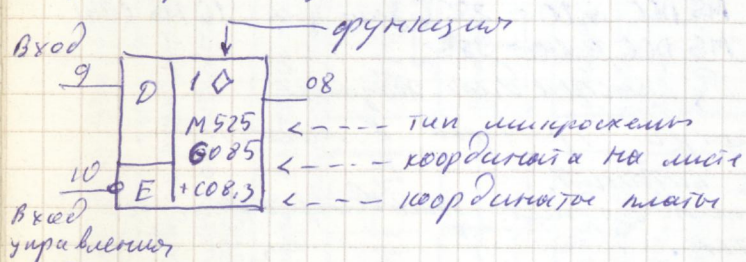 функция
Вход
9
D
1 ◇
08
M525
тип микросхемы
G085
координата на листе
10
E
+C08,3
координаты платы
Вход
управления